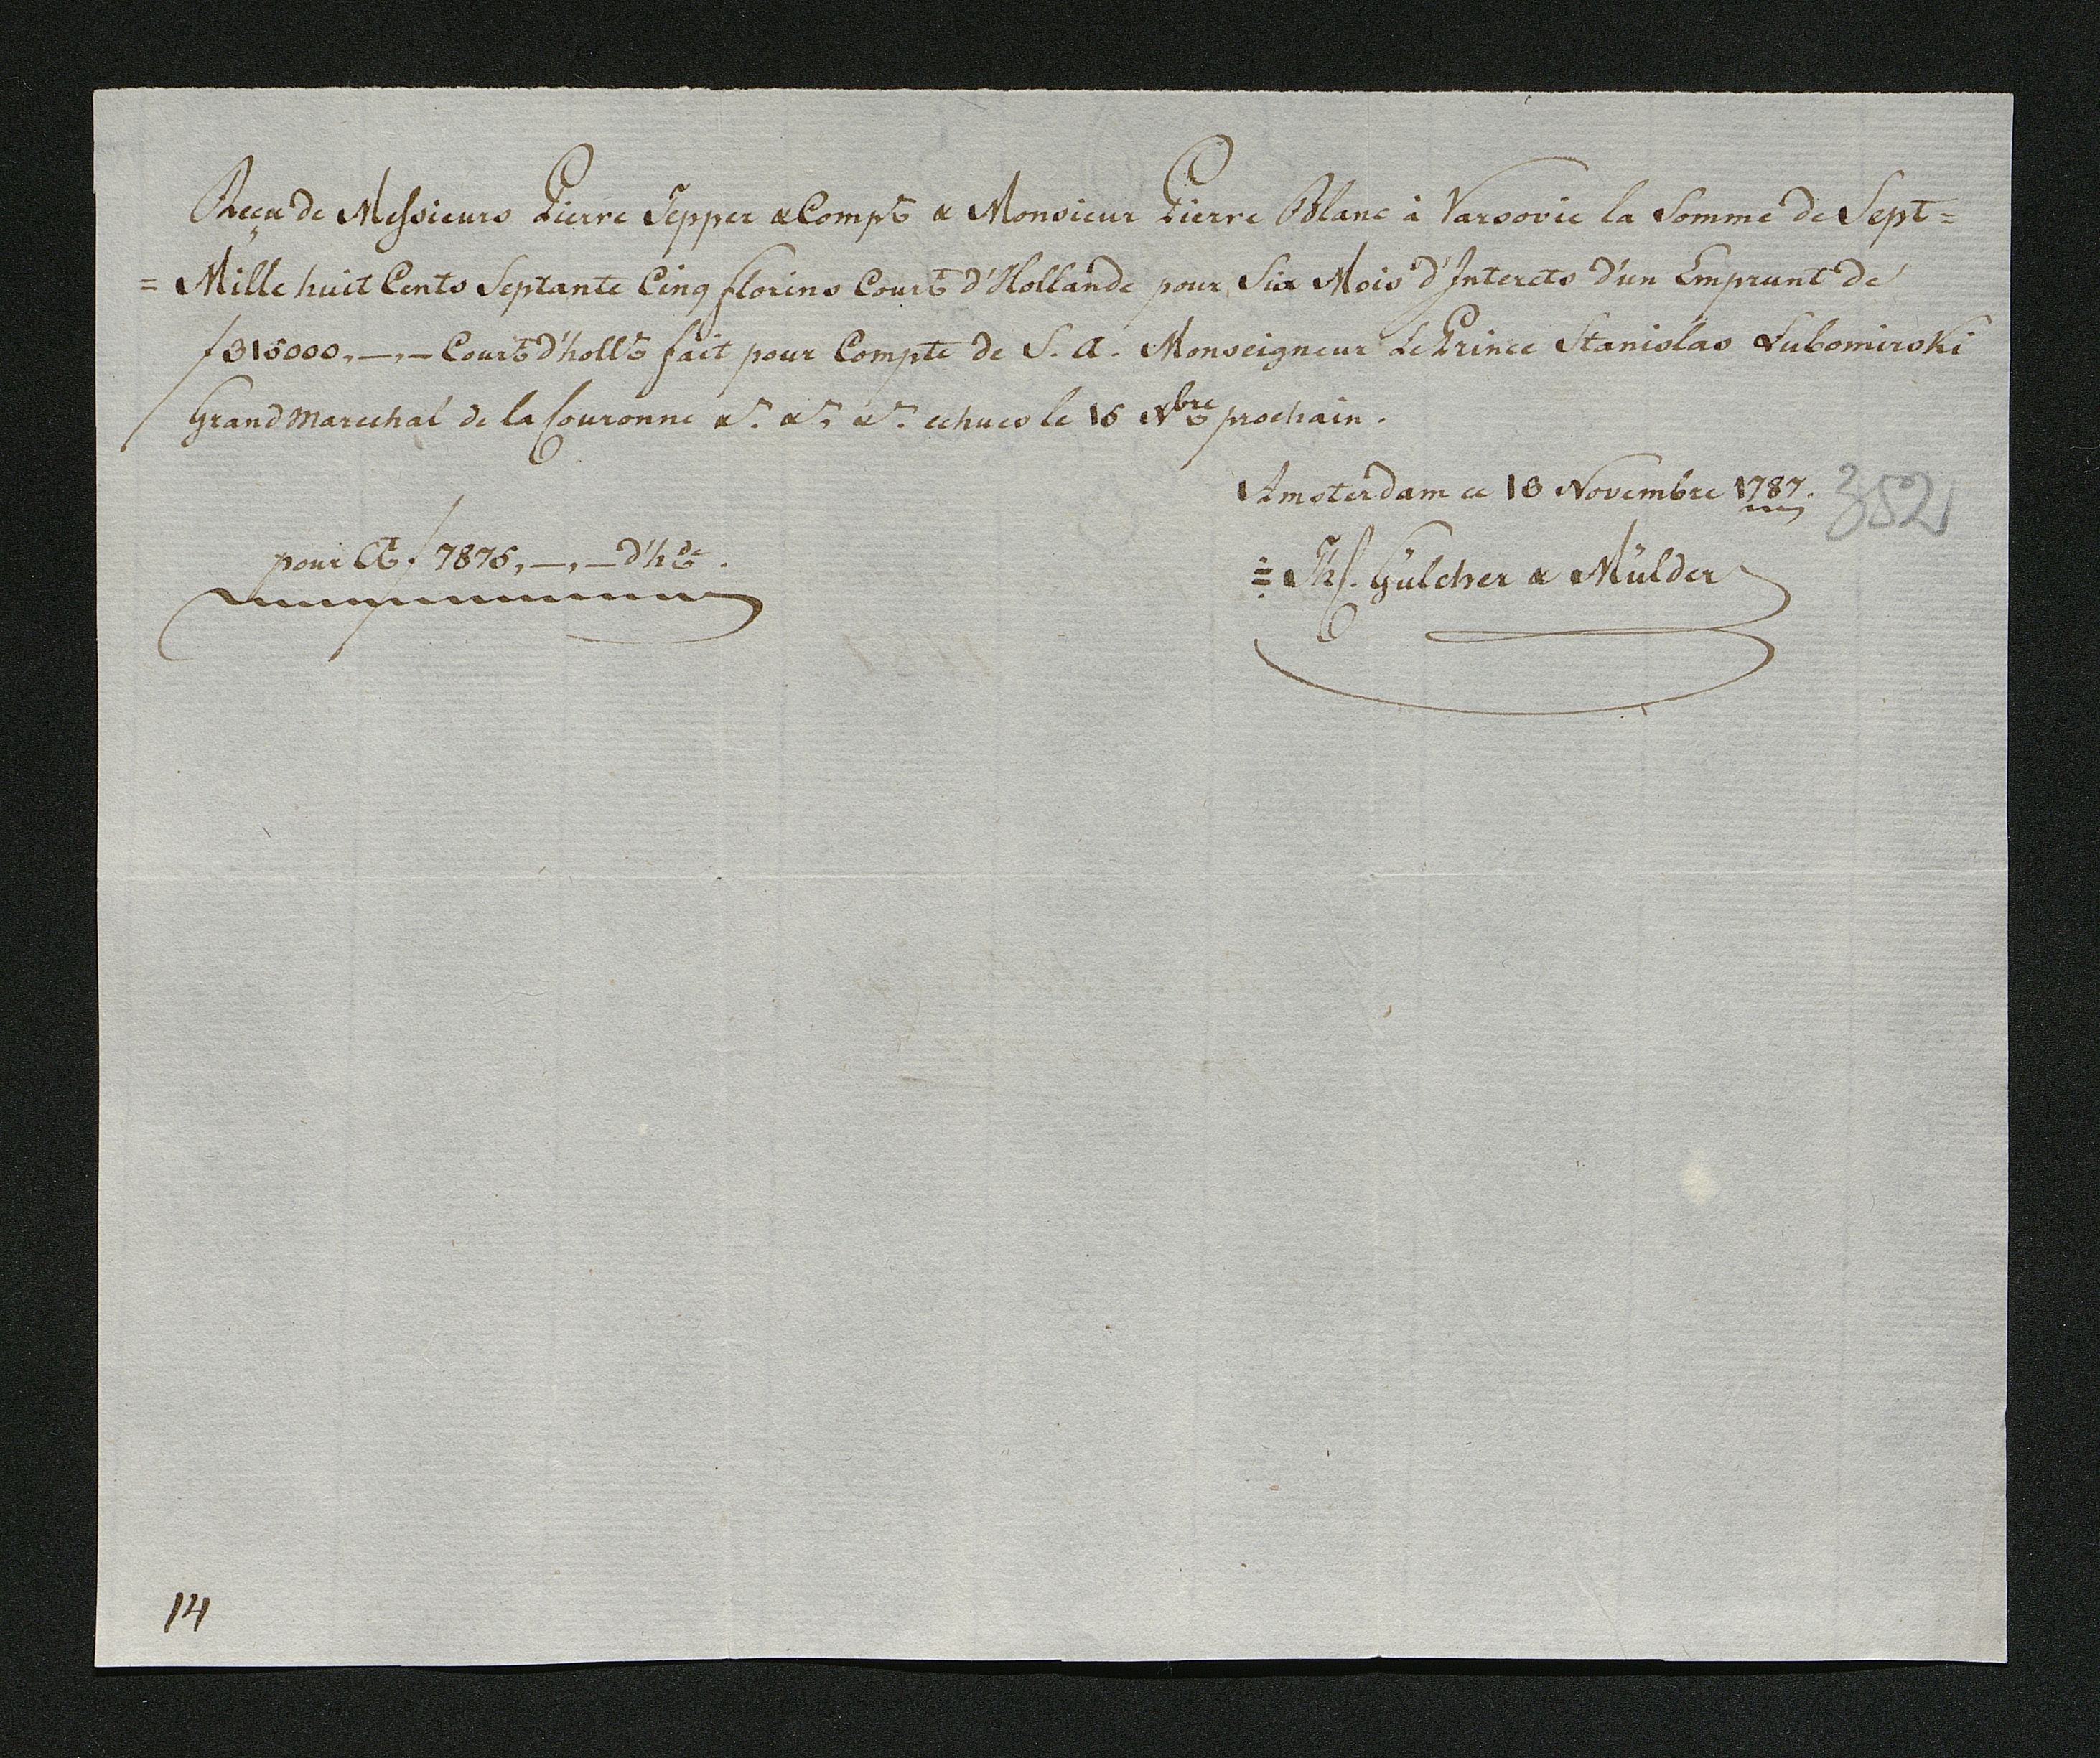 Reçu de Messieurs Pierre Tepper & Compe & Monsieur Pierre Blanc à Varsovie la Somme de Sept=
=Mille huit Cents Septante Cinq florins Court d'Hollande pour Six Mois d'Interets d'un Emprunt de
f 315000,—,— Court d'holle fait pour Compte de S. A. Monseigneur Le Prince Stanislas Lubomirski
Grand Marechal de la Couronne &c. &c. &c. echues le 15 Nbre prochain.
Amsterdam ce 13 Novembre 1787.
352
pour f 7875,—,— d'hde.
Ths. Gülcher & Mülder
14